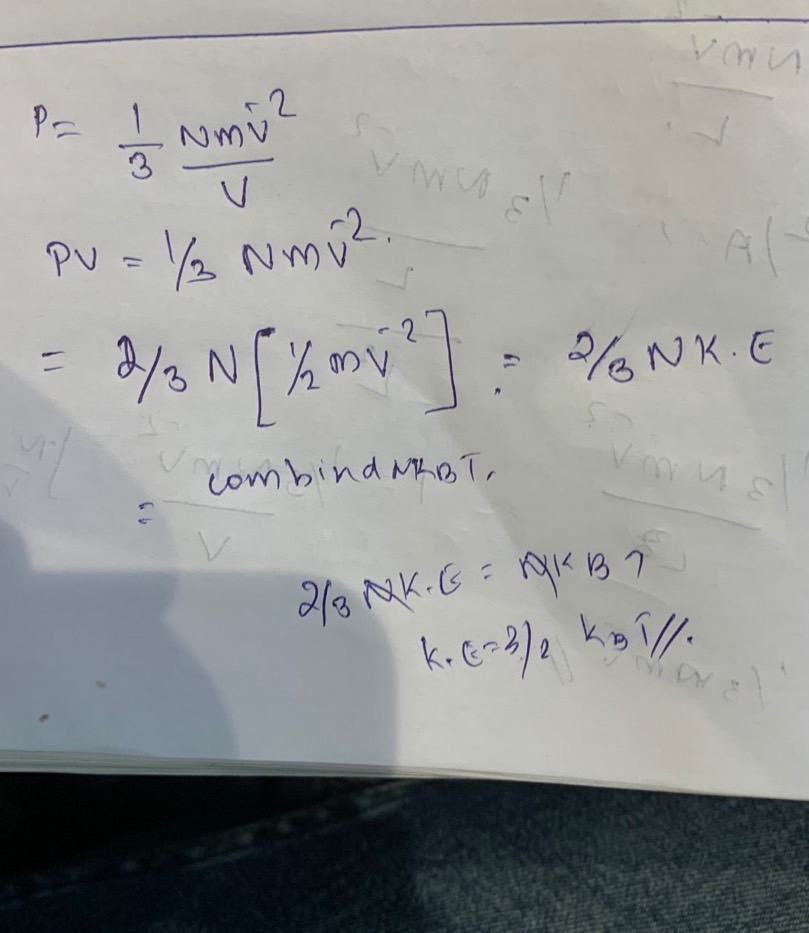 P = 1/3 Nmv̄²/V
PV = 1/3 Nmv̄².
= 2/3 N[1/2 mv̄²] = 2/3 NK.E
= combind NKBT.
2/3 NK.E = NKBT
K.E = 3/2 KBT//.